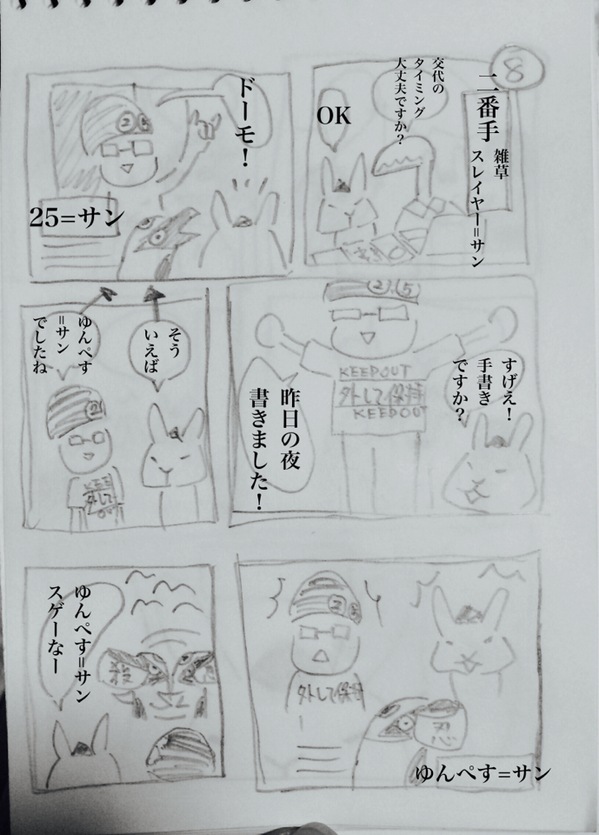 8
二番手
雑草
スレイヤー=サン
交代の
タイミング
大丈夫ですか?
OK
ドーモ!
25
25=サン
すげえ!
手書き
ですか?
25
KEEP OUT
外して保持
KEEP OUT
昨日の夜
書きました!
そう
いえば
ゆんぺす
=サン
でしたね
2
KEE
外して
OUT
25
外して保持
忍
ゆんぺす=サン
殺
ゆんぺす=サン
スゲーなー